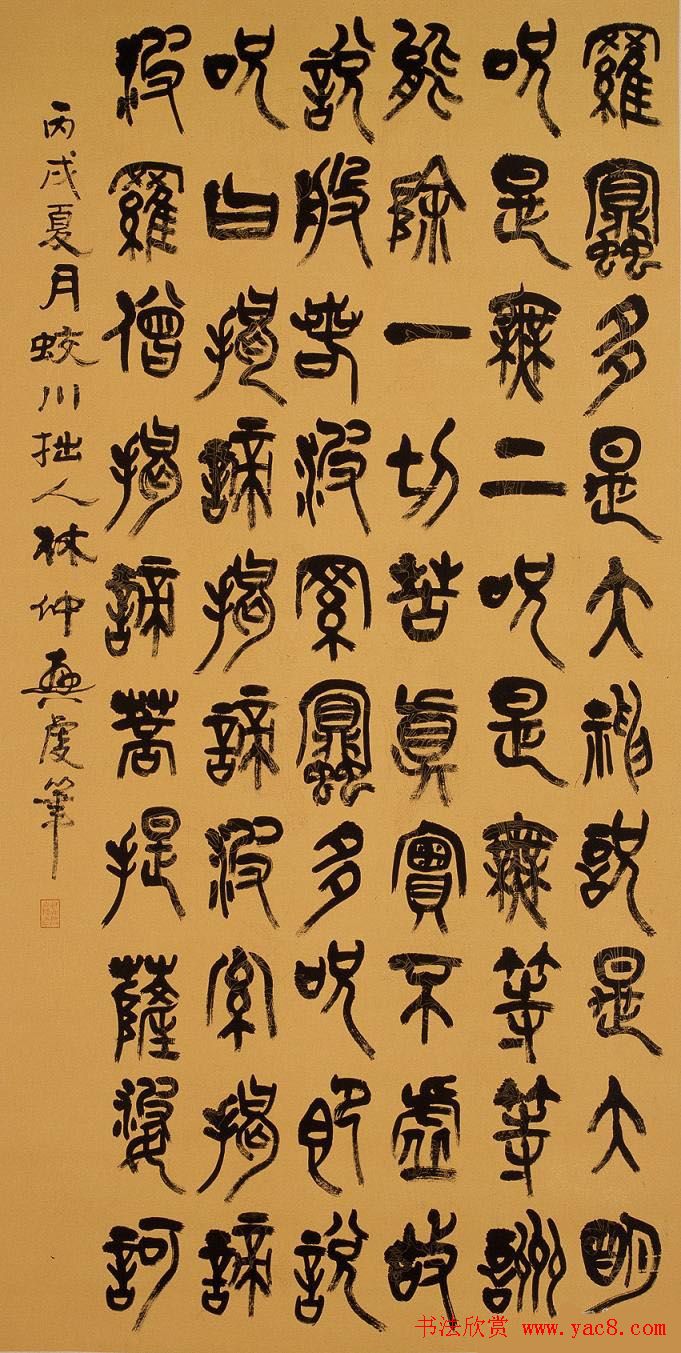 羅蜜多是大神呪是大明
呪是無上呪是無等等詶
能除一切苦真實不虛故
說般若波羅蜜多呪即說
呪曰揭諦揭諦波羅揭諦
波羅僧揭諦菩提薩婆訶
丙戌夏月蛟川拙人林仲興虔筆
书法欣赏 www.yac8.com